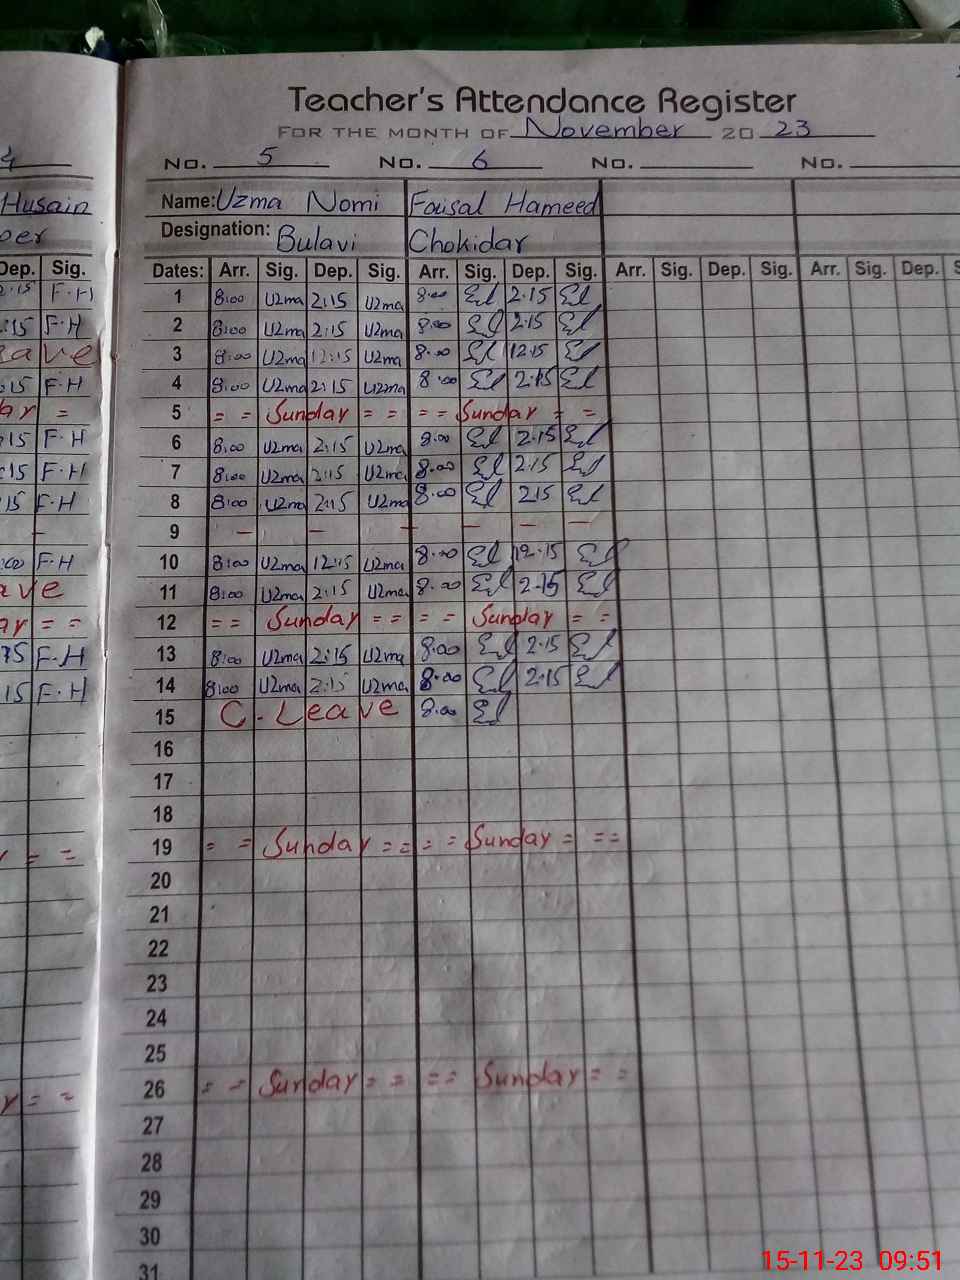 Teacher's Attendance Register
FOR THE MONTH OF November 20 23
4 No. 5 No. 6 No. No.
Husain Name: Uzma Nomi Faisal Hameed
Designation: Bulavi Chokidar
Dep. Sig. Dates: Arr. Sig. Dep. Sig. Arr. Sig. Dep. Sig. Arr. Sig. Dep. Sig. Arr. Sig. Dep.
2.15 F.H 1 8:00 Uzma 2:15 Uzma 8.00 2.15
:15 F.H 2 8:00 Uzma 2:15 Uzma 8.00 2.15
eave 3 8:00 Uzma 12:15 Uzma 8.00 12.15
:15 F.H 4 8:00 Uzma 2:15 Uzma 8.00 2.15
ay = 5 = = Sunday = = = = Sunday = =
:15 F.H 6 8:00 Uzma 2:15 Uzma 8.00 2.15
:15 F.H 7 8:00 Uzma 2:15 Uzma 8.00 2.15
15 F.H 8 8:00 Uzma 2:15 Uzma 8.00 215
– 9 – – – – – –
:00 F.H 10 8:00 Uzma 12:15 Uzma 8.00 12.15
ave 11 8:00 Uzma 2:15 Uzma 8.00 2.15
ay = = 12 = = Sunday = = = = Sunday = =
F.H 13 8:00 Uzma 2:15 Uzma 8.00 2.15
15 F.H 14 8:00 Uzma 2:15 Uzma 8.00 2.15
15 C. Leave 8.00
16
17
18
y = = 19 = = Sunday = = = = Sunday = = =
20
21
22
23
24
25
y = = 26 = = Sunday = = = = Sunday = =
27
28
29
30
31
15-11-23 09:51